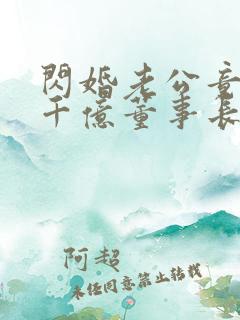 閃婚老公竟
千億董事長
阿超
未經同意禁止轉載